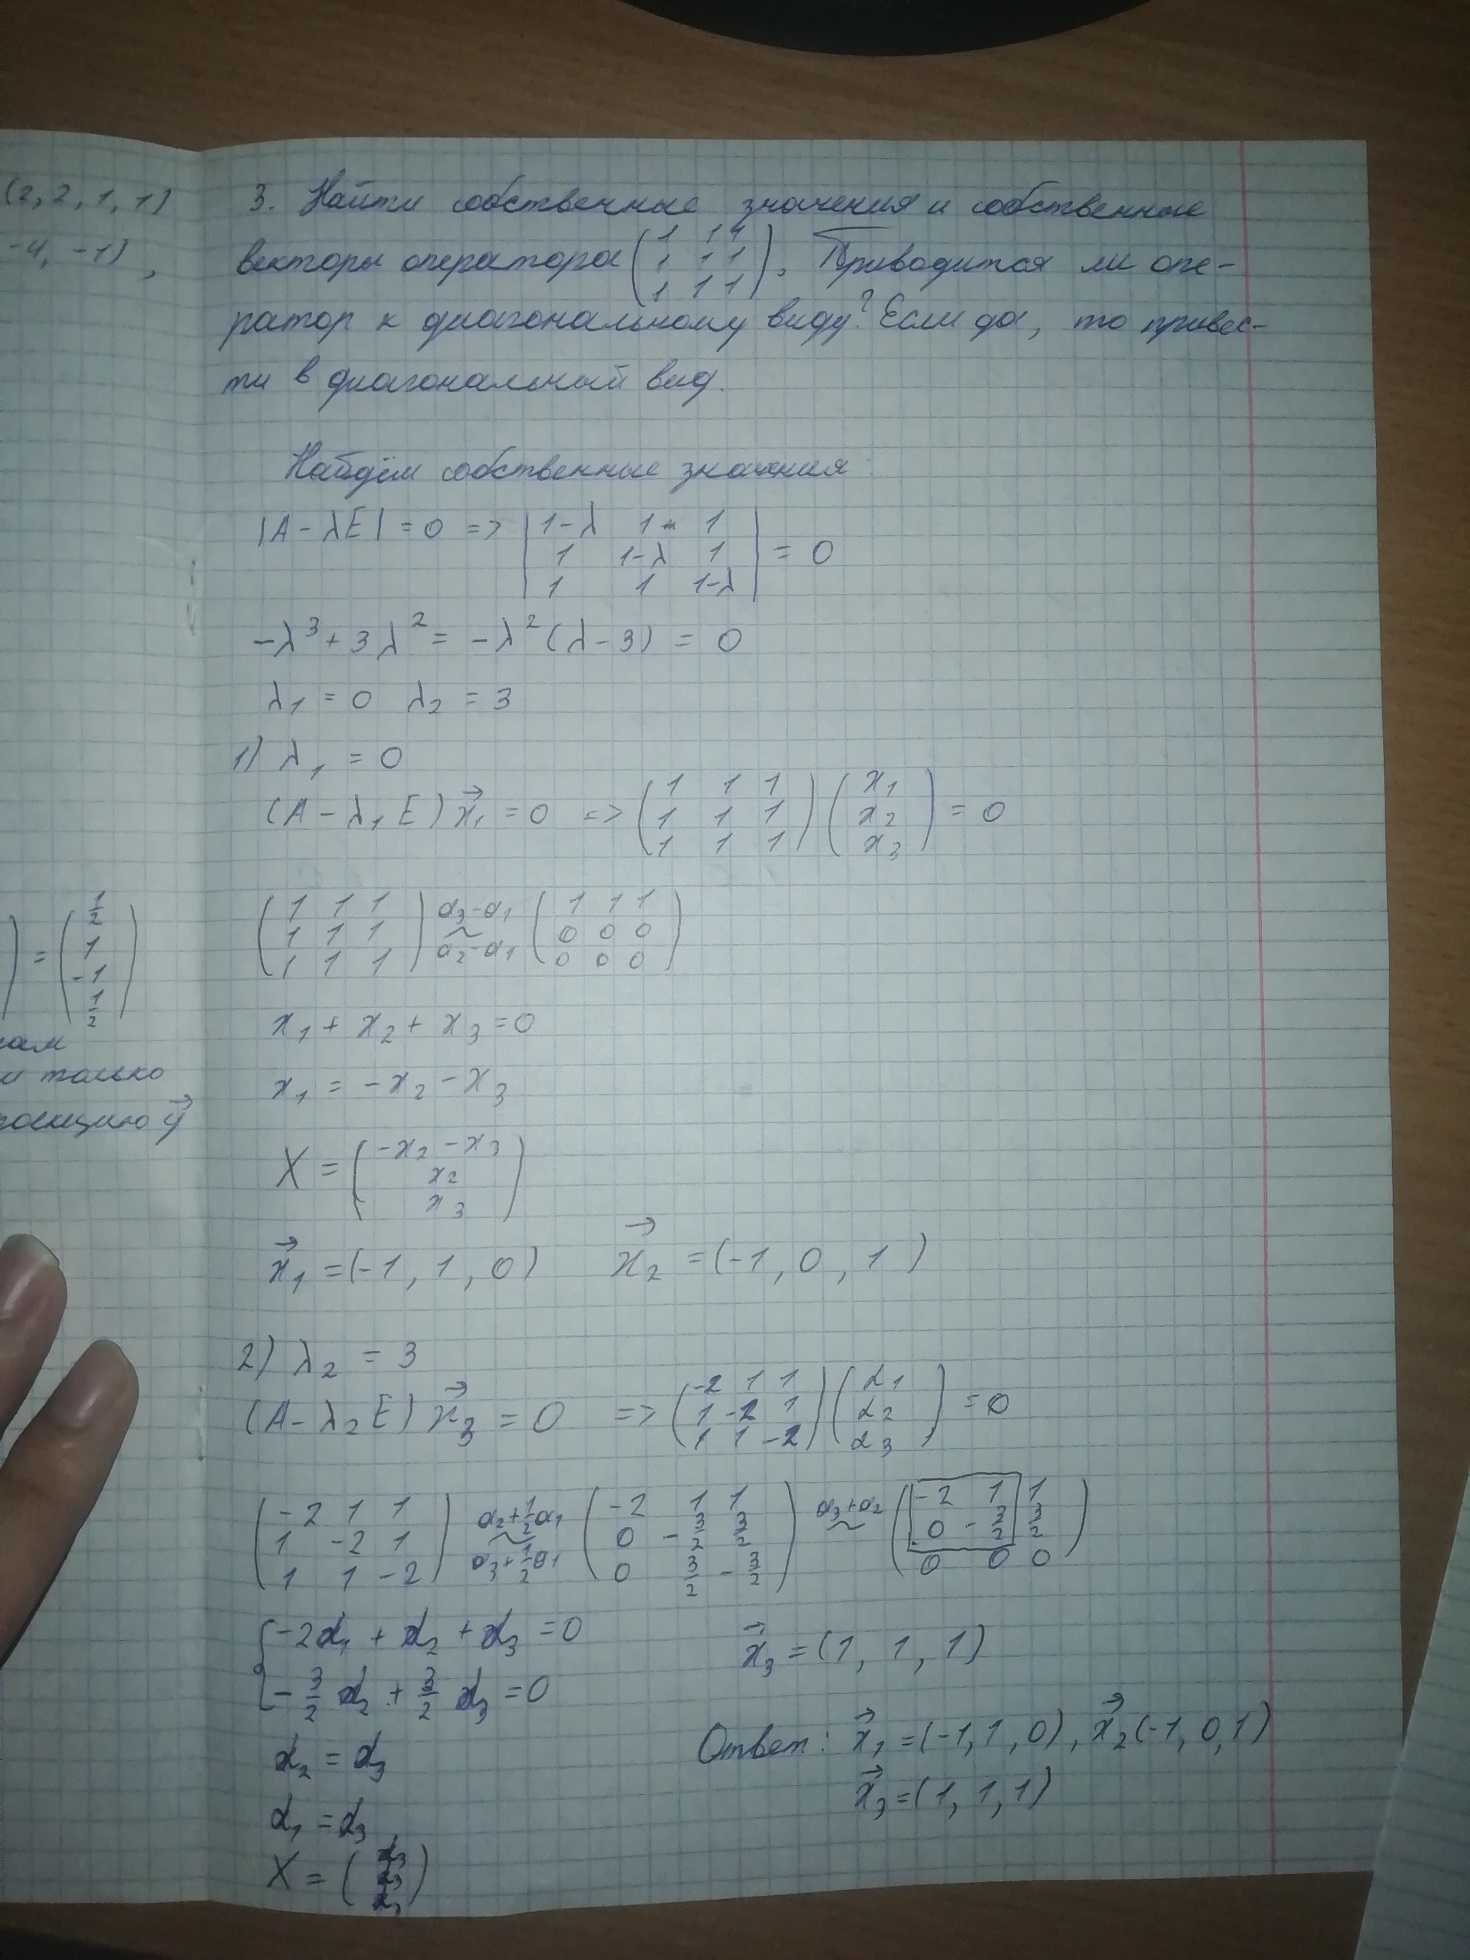 (2, 2, 1, 1)
-4, -1),
) = ( 1/2
1
-1
1/2 )
и только
3. Найти собственные значения и собственные
векторы оператора ( 1 1 1
1 1 1
1 1 1 ). Приводится ли опе-
ратор к диагональному виду? Если да, то привес-
ти в диагональный вид.
Найдём собственные значения:
|A - λE| = 0 => | 1-λ 1 1
1 1-λ 1
1 1 1-λ | = 0
-λ³ + 3λ² = -λ²(λ-3) = 0
λ₁ = 0 λ₂ = 3
1) λ₁ = 0
(A - λ₁E) x⃗₁ = 0 => ( 1 1 1
1 1 1
1 1 1 ) ( x₁
x₂
x₃ ) = 0
( 1 1 1
1 1 1
1 1 1 ) a₃-a₁ ~ a₂-a₁ ( 1 1 1
0 0 0
0 0 0 )
x₁ + x₂ + x₃ = 0
x₁ = -x₂ - x₃
X = ( -x₂ - x₃
x₂
x₃ )
x⃗₁ = (-1, 1, 0) x⃗₂ = (-1, 0, 1)
2) λ₂ = 3
(A - λ₂E) x⃗₃ = 0 => ( -2 1 1
1 -2 1
1 1 -2 ) ( α₁
α₂
α₃ ) = 0
( -2 1 1
1 -2 1
1 1 -2 ) a₂+1/2a₁ ~ a₃+1/2a₁ ( -2 1 1
0 -3/2 3/2
0 3/2 -3/2 ) a₃+a₂ ~ ( -2 1 1
0 -3/2 3/2
0 0 0 )
{ -2α₁ + α₂ + α₃ = 0
-3/2 α₂ + 3/2 α₃ = 0
x⃗₃ = (1, 1, 1)
α₂ = α₃
α₁ = α₃
X = ( α₃
α₃
α₃ )
Ответ: x⃗₁ = (-1, 1, 0), x⃗₂ (-1, 0, 1)
x⃗₃ = (1, 1, 1)